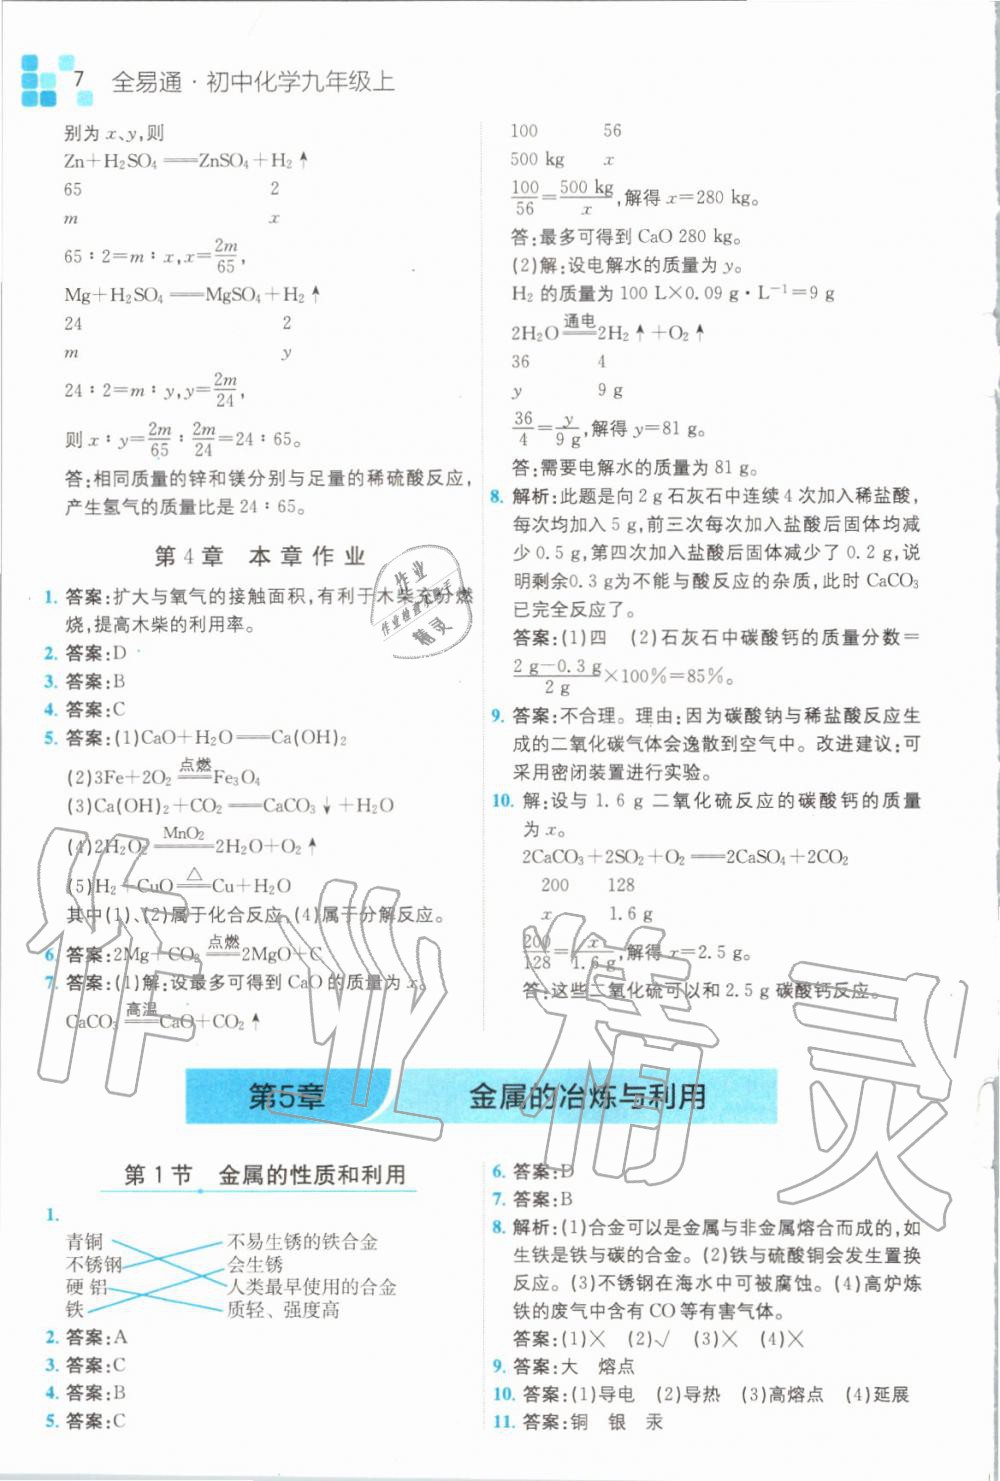 7 全易通·初中化学九年级上
别为 x、y,则
Zn+H₂SO₄══ZnSO₄+H₂↑
65 2
m x
65∶2=m∶x,x=2m/65,
Mg+H₂SO₄══MgSO₄+H₂↑
24 2
m y
24∶2=m∶y,y=2m/24,
则 x∶y=2m/65∶2m/24=24∶65。
答:相同质量的锌和镁分别与足量的稀硫酸反应,
产生氢气的质量比是 24∶65。
第 4 章 本 章 作 业
1. 答案:扩大与氧气的接触面积,有利于木柴充分燃
烧,提高木柴的利用率。
2. 答案:D
3. 答案:B
4. 答案:C
5. 答案:(1)CaO+H₂O══Ca(OH)₂
(2)3Fe+2O₂ 点燃══ Fe₃O₄
(3)Ca(OH)₂+CO₂══CaCO₃↓+H₂O
(4)2H₂O₂ MnO₂══ 2H₂O+O₂↑
(5)H₂+CuO △══ Cu+H₂O
其中(1)、(2)属于化合反应,(4)属于分解反应。
6. 答案:2Mg+CO₂ 点燃══ 2MgO+C
7. 答案:(1)解:设最多可得到 CaO 的质量为 x。
CaCO₃ 高温══ CaO+CO₂↑
100 56
500 kg x
100/56=500 kg/x,解得 x=280 kg。
答:最多可得到 CaO 280 kg。
(2)解:设电解水的质量为 y。
H₂ 的质量为 100 L×0.09 g·L⁻¹=9 g
2H₂O 通电══ 2H₂↑+O₂↑
36 4
y 9 g
36/4=y/9 g,解得 y=81 g。
答:需要电解水的质量为 81 g。
8. 解析:此题是向 2 g 石灰石中连续 4 次加入稀盐酸,
每次均加入 5 g,前三次每次加入盐酸后固体均减
少 0.5 g,第四次加入盐酸后固体减少了 0.2 g,说
明剩余0.3 g为不能与酸反应的杂质,此时 CaCO₃
已完全反应了。
答案:(1)四 (2)石灰石中碳酸钙的质量分数=
2 g−0.3 g/2 g×100%=85%。
9. 答案:不合理。理由:因为碳酸钠与稀盐酸反应生
成的二氧化碳气体会逸散到空气中。改进建议:可
采用密闭装置进行实验。
10. 解:设与 1.6 g 二氧化硫反应的碳酸钙的质量
为 x。
2CaCO₃+2SO₂+O₂══2CaSO₄+2CO₂
200 128
x 1.6 g
200/128=x/1.6 g,解得 x=2.5 g。
答:这些二氧化硫可以和 2.5 g 碳酸钙反应。
第5章 金属的冶炼与利用
第 1 节 金属的性质和利用
1.
青铜 不易生锈的铁合金
不锈钢 会生锈
硬 铝 人类最早使用的合金
铁 质轻、强度高
2. 答案:A
3. 答案:C
4. 答案:B
5. 答案:C
6. 答案:D
7. 答案:B
8. 解析:(1)合金可以是金属与非金属熔合而成的,如
生铁是铁与碳的合金。(2)铁与硫酸铜会发生置换
反应。(3)不锈钢在海水中可被腐蚀。(4)高炉炼
铁的废气中含有 CO 等有害气体。
答案:(1)× (2)√ (3)× (4)×
9. 答案:大 熔点
10. 答案:(1)导电 (2)导热 (3)高熔点 (4)延展
11. 答案:铜 银 汞
作业
作业检查小助手
精灵
作业精灵